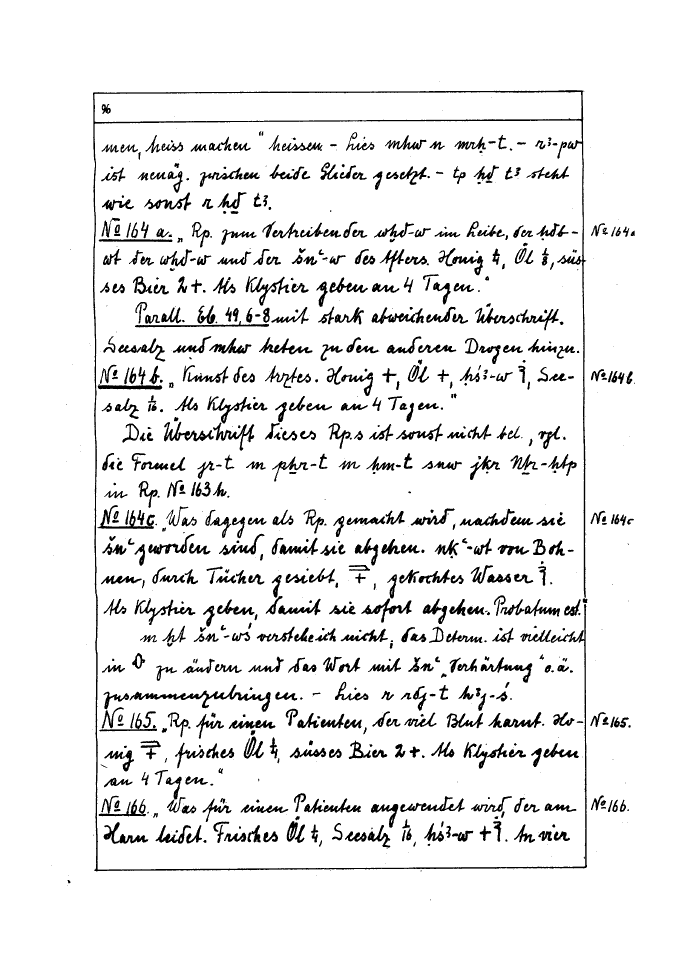 96
men, heiss machen" heissen - Lies mhw n mrḥ-t. - rꜣ-pw
ist neuäg. zwischen beide Glieder gesetzt. - tp ḥḏ tꜣ steht
wie sonst r ḥḏ tꜣ.
№ 164 a. „Rp. zum Vertreiben der wḫd-w im Leibe, der ḥdb-
wt der wḫd-w und der šnꜥ-w des Afters. Honig ¼, Öl ⅛, süs-
ses Bier 2+. Als Klystier geben an 4 Tagen."
Parall. Eb. 49, 6-8 mit stark abweichender Überschrift.
Seesalz und mhw treten zu den anderen Drogen hinzu.
№ 164 b. „Kunst des Arztes. Honig +, Öl +, ḥsꜣ-w, See-
salz 1/16. Als Klystier geben an 4 Tagen."
Die Überschrift dieses Rp.s ist sonst nicht bel., vgl.
die Formel jr-t m pẖr-t m ḥm-t snw jḳr Nfr-ḥtp
in Rp. № 163 h.
№ 164c. „Was dagegen als Rp. gemacht wird, nachdem sie
šnꜥ geworden sind, damit sie abgehen. nkꜥ-wt von Boh-
nen, durch Tücher gesiebt, gekochtes Wasser.
Als Klystier geben, damit sie sofort abgehen. Probatum est."
m ḫt šnꜥ-wś verstehe ich nicht, das Determ. ist vielleicht
in zu ändern und das Wort mit šnꜥ „Verhärtung" o.ä.
zusammenzubringen. - Lies r rdj-t hꜣj-ś.
№ 165. „Rp. für einen Patienten, der viel Blut harnt. Ho-
nig, frisches Öl ¼, süsses Bier 2+. Als Klystier geben
an 4 Tagen."
№ 166. „Was für einen Patienten angewendet wird, der am
Harn leidet. Frisches Öl ¼, Seesalz 1/16, ḥsꜣ-w +. An vier
№ 164a
№ 164b.
№ 164c
№ 165.
№ 166.